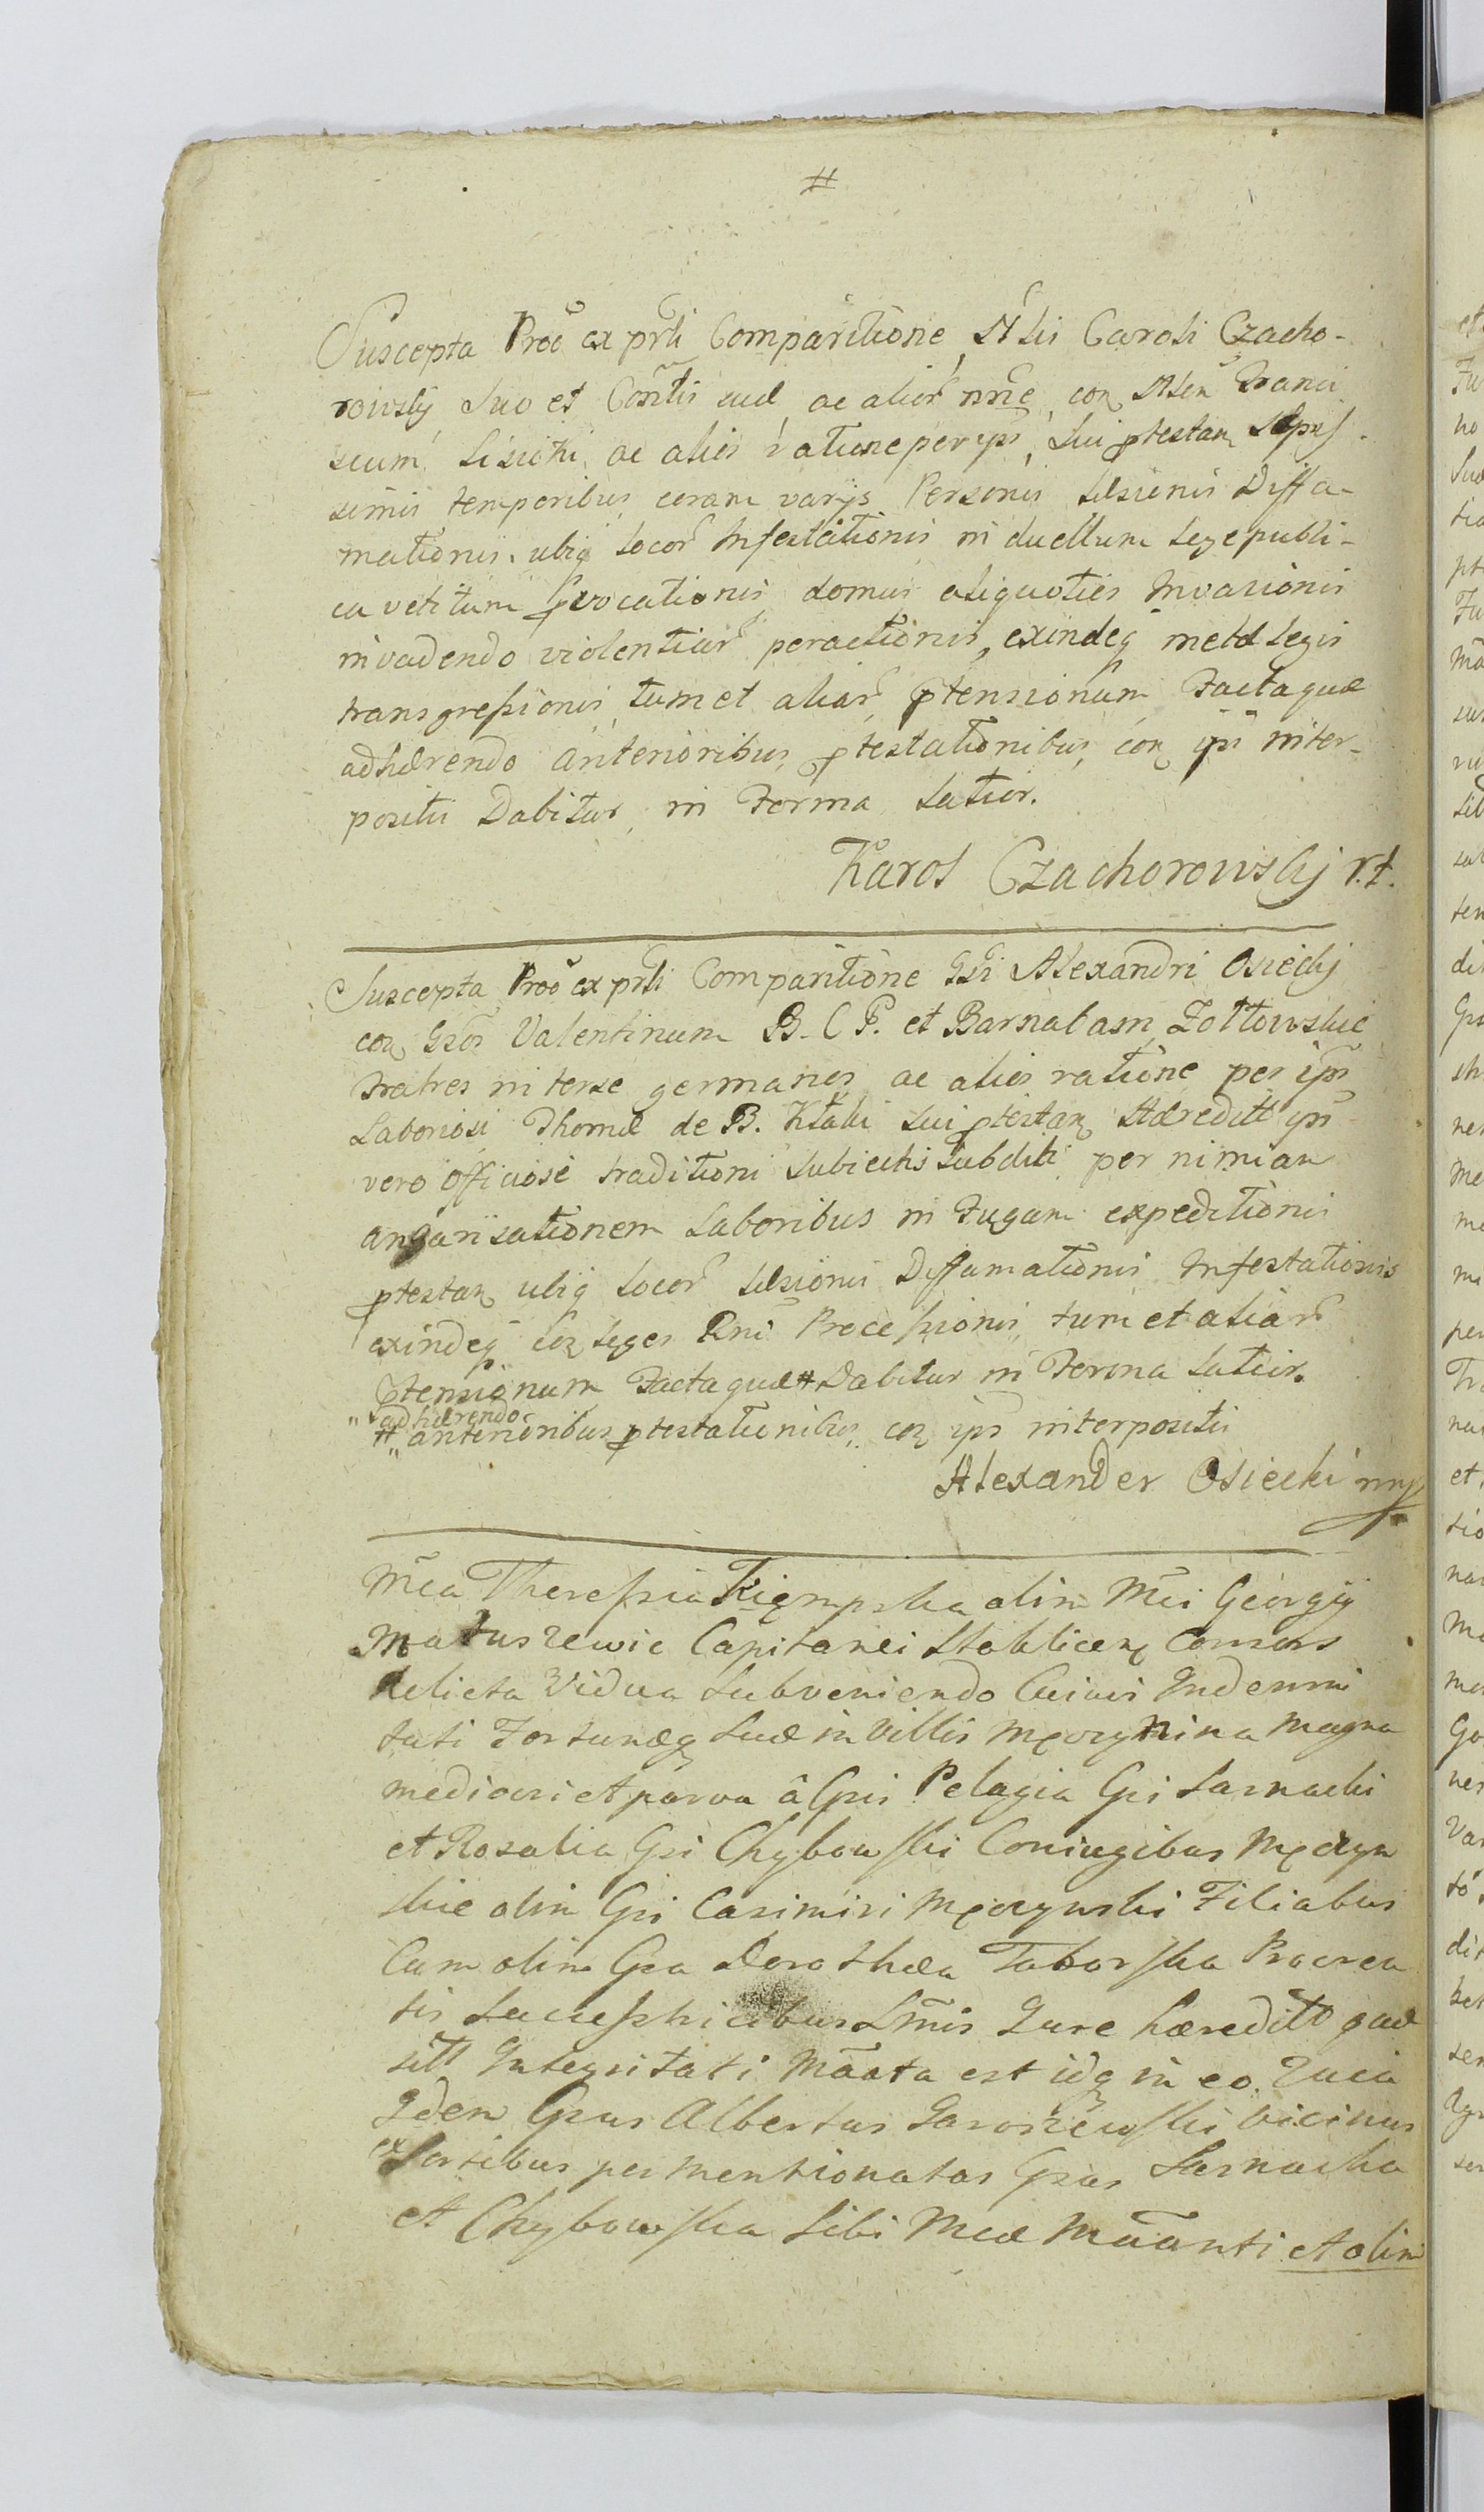 #
Suscepta Proō ex prñti Comparitione Nlis Caroli Czacho-
rowskij suo et Consŕtis suæ ac alior nñe, coñ Nlem Franci
scum Lisicki ac alios ratione per ips sui ptestan
simis temporibus coram varÿs Personis Læsionis Diffa-
mationis ubiq locor Infestationis in duellum lege publi-
ca vetitum pvocationis domus aliquoties Invasionis
invadendo violentiar peractionis, exindeq Legis
transgressionis tum et aliar ptensionum Factaquæ
adhærendo anterioribus ptestationibus con ips inter-
positis Dabitur in Forma latior.
Karol Czachorowskij
Suscepta Proō ex prñti Comparitione Gsi Alexandri Osieckij
con Gsos Valentinum B. C P. et Barnabam Zołtowskie
Fratres interse germanos ac alios ratione per ips
Laboriosi Thomæ de B. sui ptestan Hæreditt ips
vero officiose traditioni subiectis subditi per nimiam
angarisationem Laboribus in Fugam expeditionis
ptestan ubiq locor Læsionis Diffamationis Infestationis
exindeq con leges Rni Processionis tum et aliar
ptensionum Factaquæ # Dabitur in Forma latior.
"adhærendo
# "anterioribus ptestationibus con ips interpositis
Alexander Osiecki mp
Mc̄a Theressia Kięmpska olim Mc̄i Georgÿ
Matuszewic Capitanei Stoklicen Consors
Relicta Vidua Subveniendo Cuivis Indemni
tati Fortunæq suæ in Villis Męczynina Magna
mediocri et parva â Gsis Pelagia Gsi Sarnacki
et Rosalia Gsi Chybowski Coniugibus Męczyn
skie olim Gsi Casimiri Męczynski Filiabus
Cum olim Gsa Dorothæa Taborska Procrea
tis Successricibus Lm̄is Jure hæreditt quæ
sitt Integritati Mān̄ta est idq in eo. Quia
Iden Gsus Albertus Jaroszewski vicinus
ex Sortibus per mentionatas Gsas Sarnacka
et Chybowska Sibi Mcæ Mānanti et olim